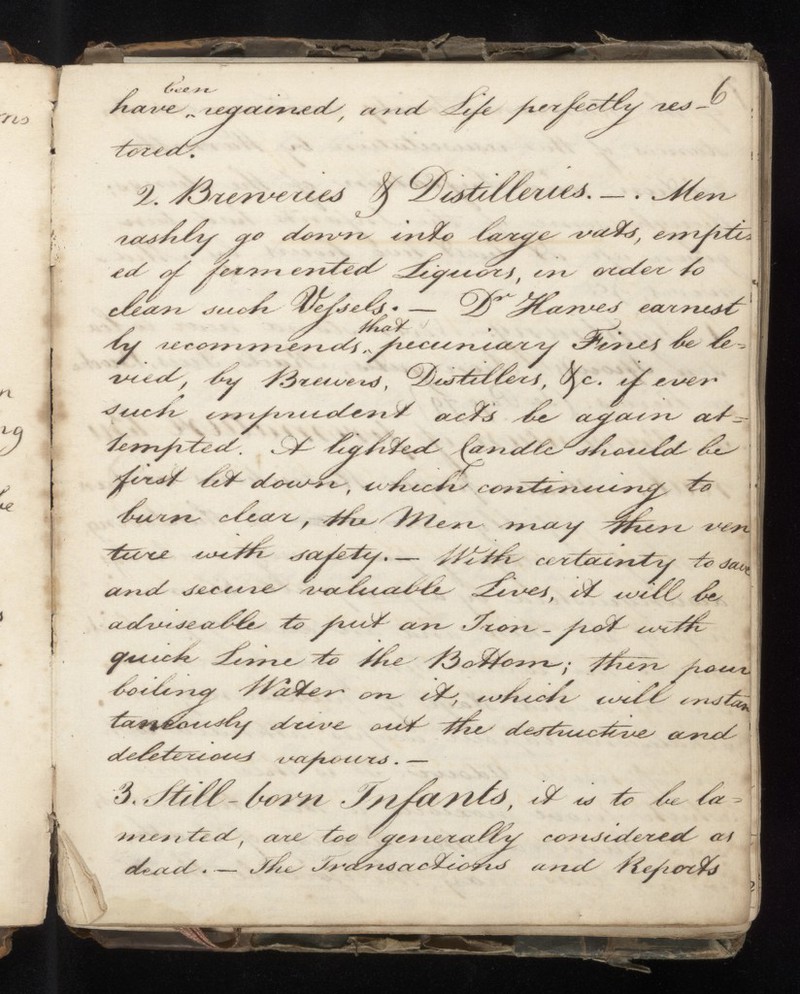 6
been
have ‸ regained, and Life perfectly res-
tored.
2. Breweries & Distilleries. — . Men
rashly go down into large vats, empti
ed of fermented Liquors, in order to
clean such Veſsels. — Dr Hawes earnest
that
ly recommends ‸ pecuniary Fines be le=
vied, by Brewers, Distillers, &c. if ever
such imprudent acts be again at=
tempted. A lighted Candle should be
first let down, which continuing to
burn clear, the Men may then ven
ture with safety. — With certainty to save
and secure valuable Lives, it will be
adviseable to put an Iron-pot with
quick Lime to the Bottom; then pour
boiling Water on it, which will instan
taneously drive out the destructive and
deleterious vapours. —
3. Still-born Infants, it is to be la=
mented, are too generally considered as
dead. — The Transactions and Reports
ns
n
ng